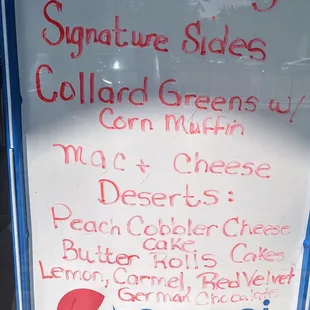 Signature Sides
Collard Greens w/
Corn Muffin
Mac + Cheese
Deserts:
Peach Cobbler Cheese
cake
Butter Rolls Cakes
Lemon, Carmel, Red Velvet
German Chocolate